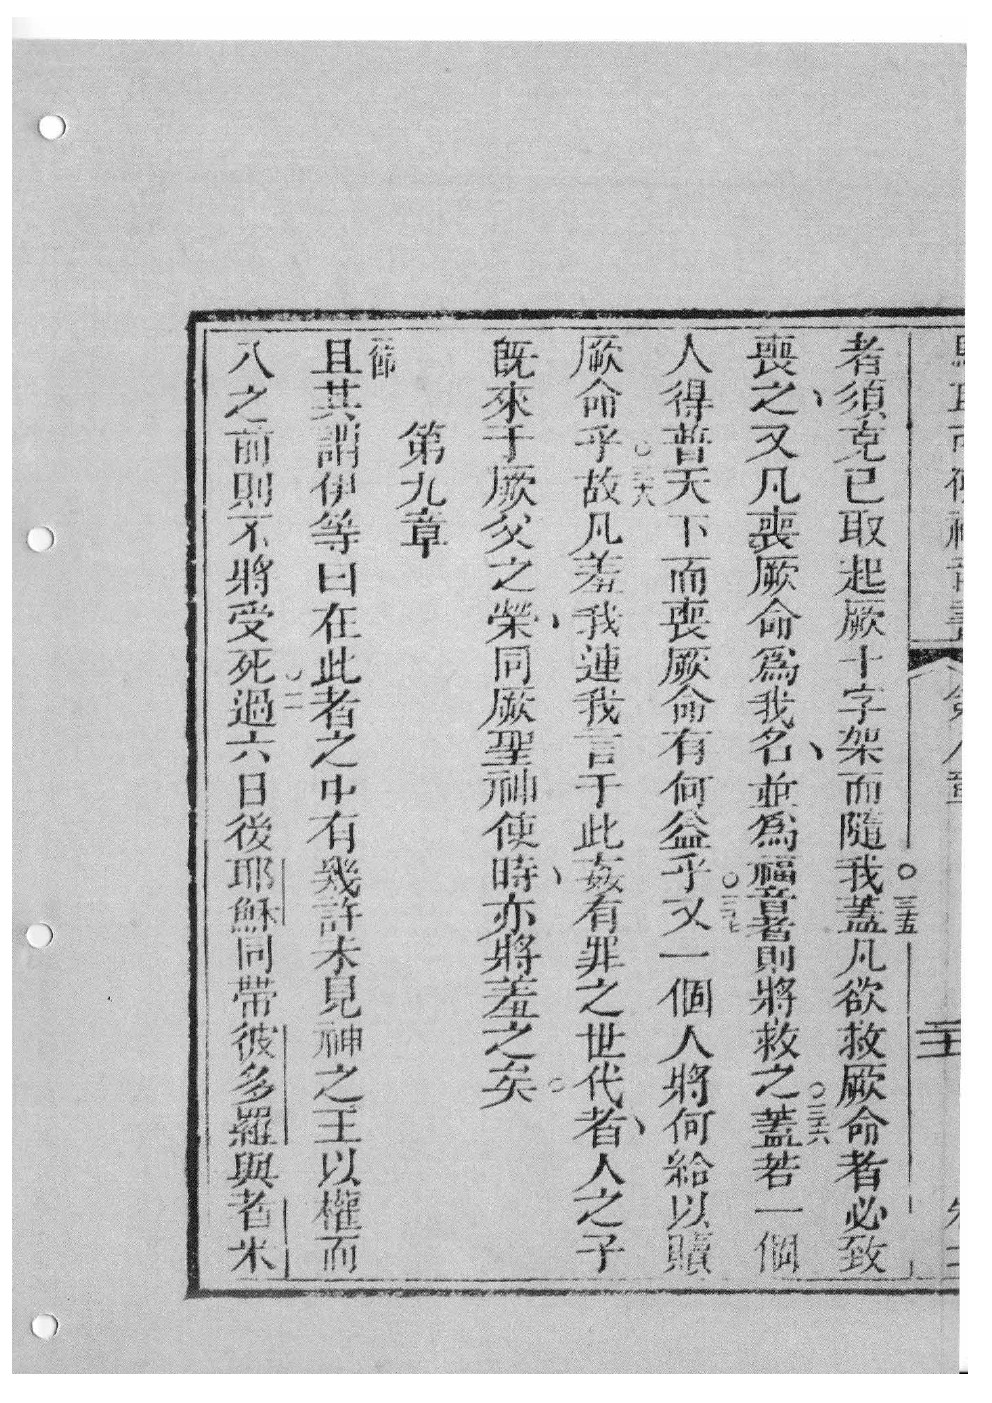 者須克已取起厥十字架而隨我○三五蓋凡欲救厥命者必致
喪之、又凡喪厥命爲我名、並爲福音者則將救之○三六蓋若一個
人得普天下而喪厥命有何益乎○三七又一個人將何給以贖
厥命乎○三十八故凡羞我連我言于此姦有罪之世代者、人之子
既來于厥父之榮、同厥聖神使時、亦將羞之矣○
第九章
一節
且其謂伊等曰在此者之中有幾許未見神之王以權而
八之前則不將受死○二過六日後耶穌同帶彼多羅與者米